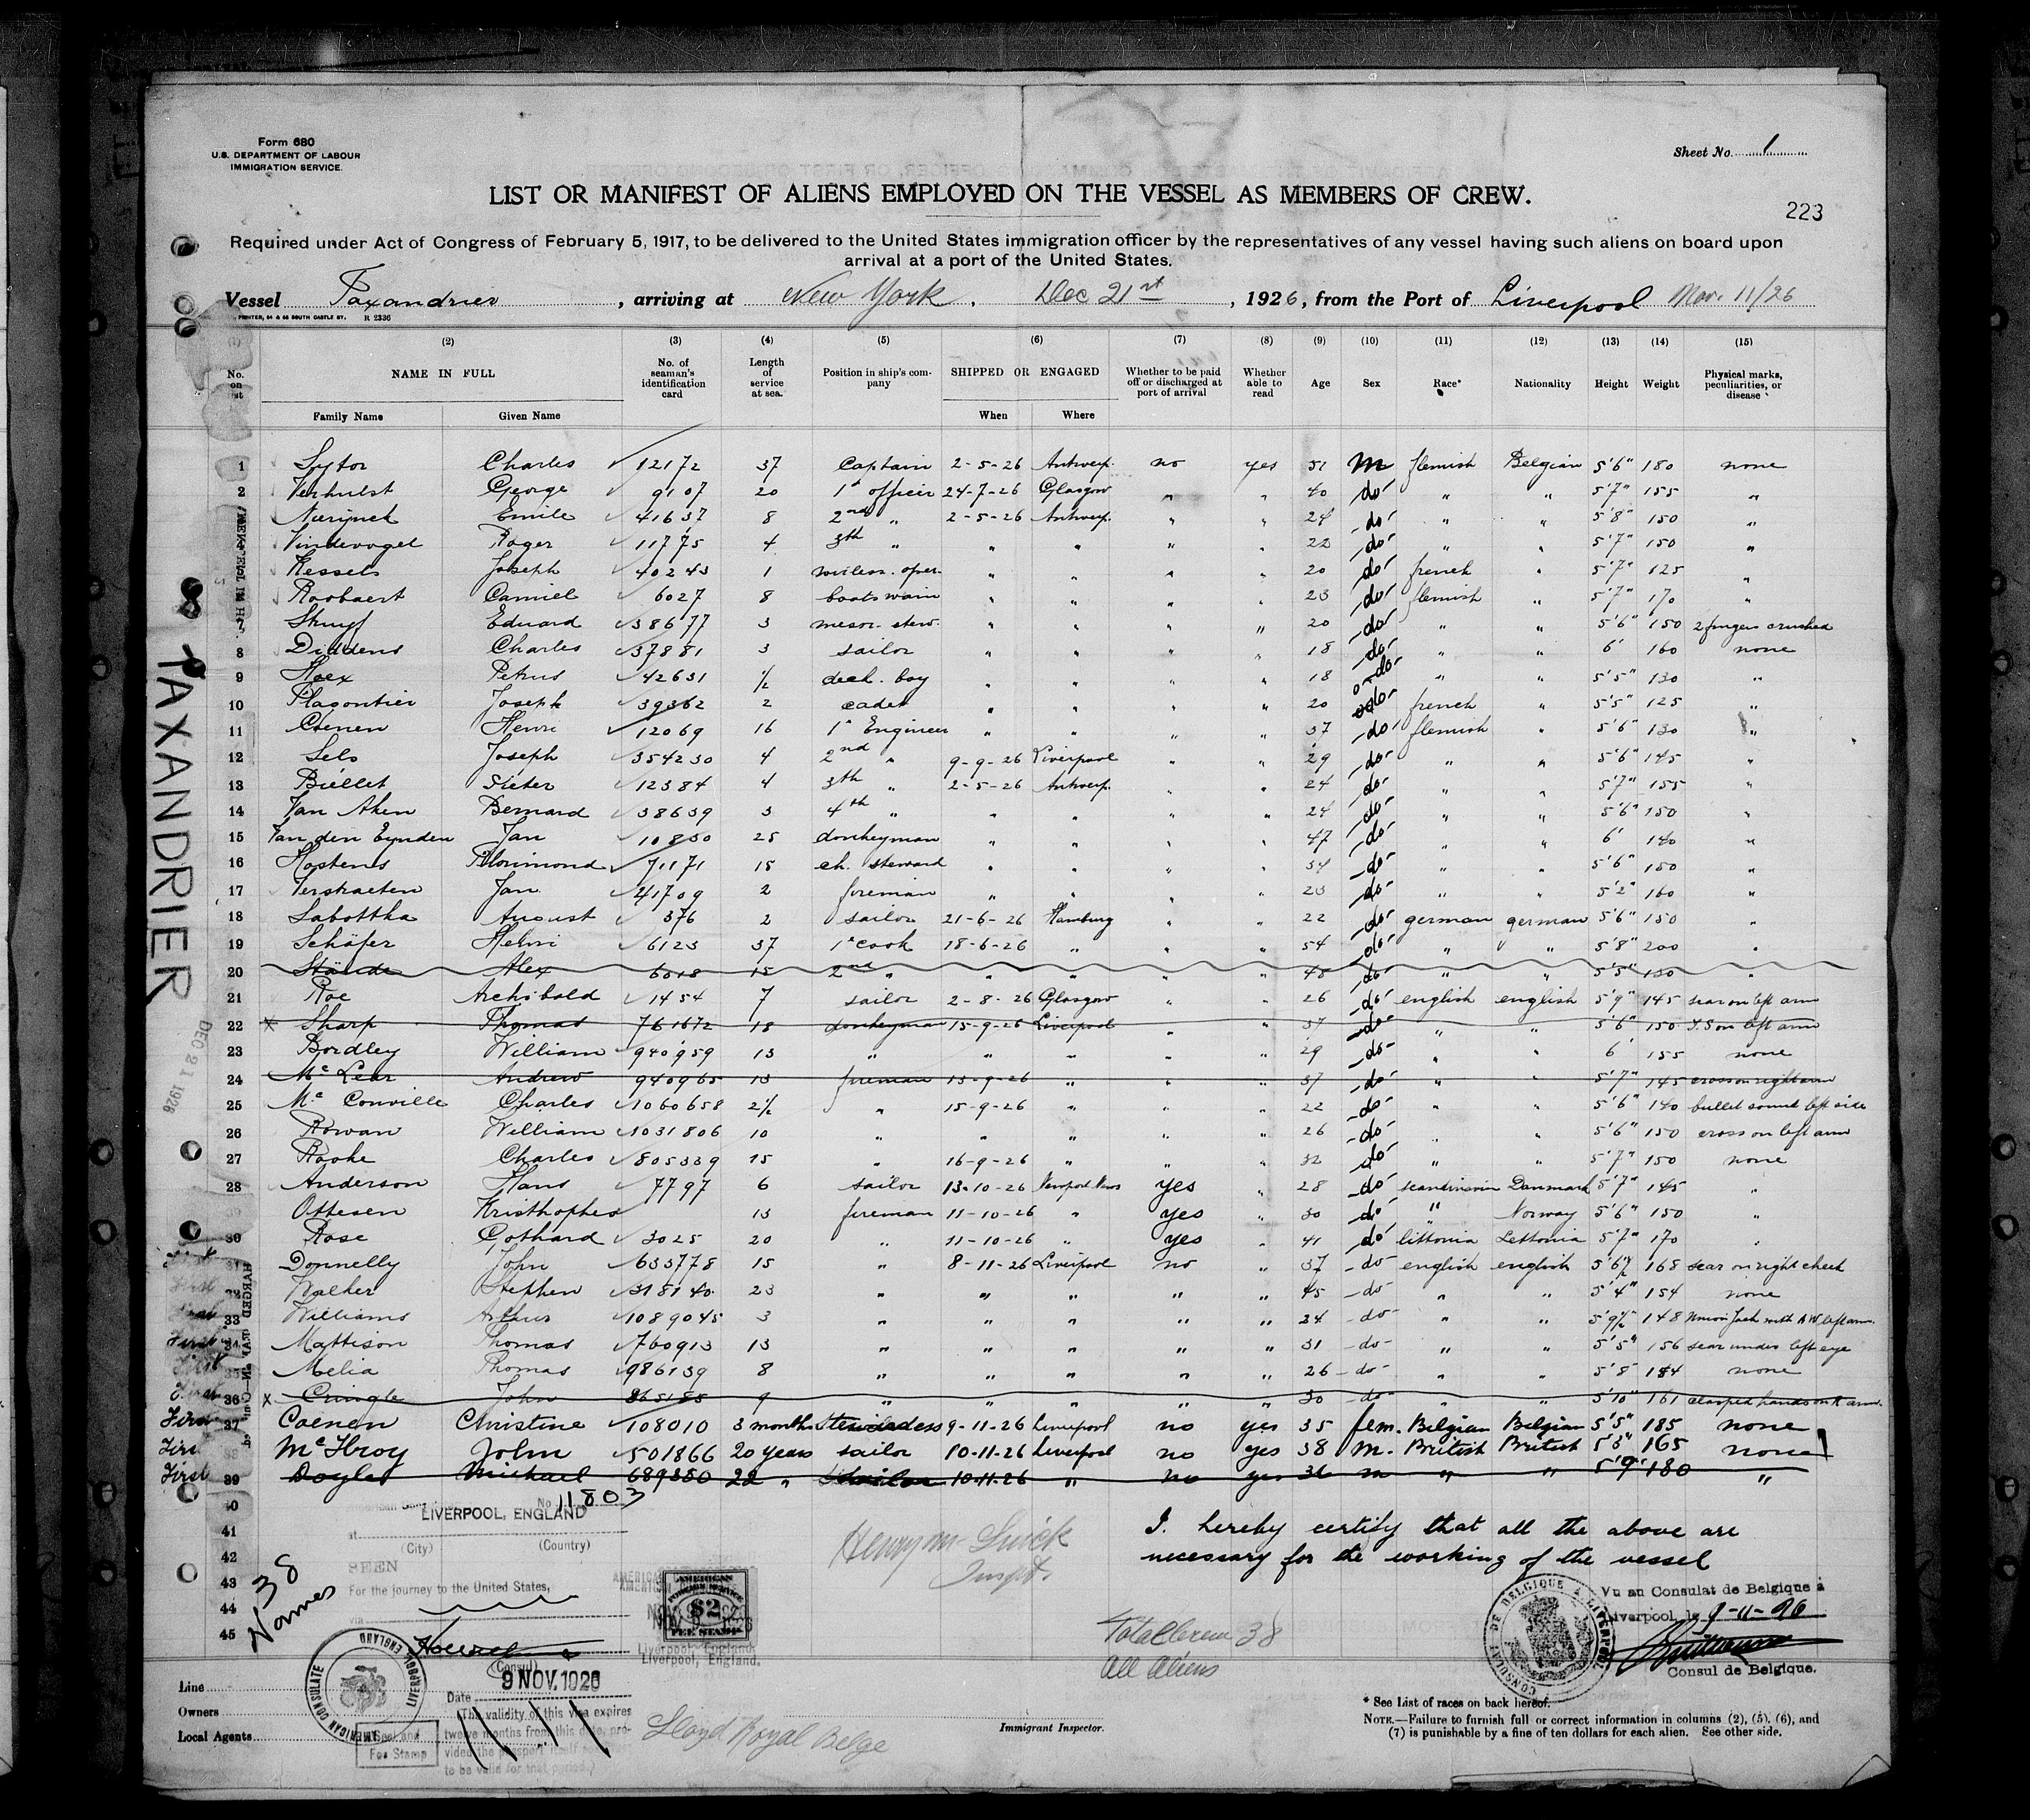 Form 680
U.S. DEPARTMENT OF LABOUR
IMMIGRATION SERVICE.
Sheet No. 1
LIST OR MANIFEST OF ALIENS EMPLOYED ON THE VESSEL AS MEMBERS OF CREW.
223
Required under Act of Congress of February 5, 1917, to be delivered to the United States immigration officer by the representatives of any vessel having such aliens on board upon
arrival at a port of the United States.
Vessel Taxandrier, arriving at New York, Dec 21st, 1926, from the Port of Liverpool Nov. 11/26
PRINTER, 54 & 56 SOUTH CASTLE ST. R 2336
(2) (3) (4) (5) (6) (7) (8) (9) (10) (11) (12) (13) (14) (15)
No. on NAME IN FULL No. of seaman's identification card Length of service at sea. Position in ship's company SHIPPED OR ENGAGED Whether to be paid off or discharged at port of arrival Whether able to read Age Sex Race* Nationality Height Weight Physical marks, peculiarities, or disease
Family Name Given Name When Where
1 Sytor Charles 12172 37 Captain 2-5-26 Antwerp. no yes 51 m flemish Belgian 5'6" 180 none
2 Verhulst George 9107 20 1st officer 24-7-26 Glasgow " " 40 do " " 5'7" 155 "
Nuerynck Emile 41637 8 2nd " 2-5-26 Antwerp. " " 24 do " " 5'8" 150 "
Vindevogel Roger 11775 4 3th " " " " " 22 do " " 5'7" 150 "
Kessels Joseph 40243 1 wireless. oper. " " " " 20 do french " 5'7" 125 "
Roobaert Camiel 6027 8 boatswain " " " " 23 do flemish " 5'7" 170 "
Stuyf Eduard 38677 3 messr. stew. " " " " 20 do " " 5'6" 150 2 fingers crushed
8 Diddens Charles 37881 3 sailor " " " " 18 do " " 6' 160 none
9 Hoex Petrus 42631 1/2 deck. boy " " " " 18 do " " 5'5" 130 "
10 Plagontier Joseph 39362 2 cadet " " " " 20 do french " 5'5" 125 "
11 Coenen Henri 12069 16 1st Engineer " " " " 37 do flemish " 5'6" 130 "
12 Sels Joseph 354230 4 2nd " 9-9-26 Liverpool " " 29 do " " 5'6" 145 "
13 Biéllet Pieter 12384 4 3th " 2-5-26 Antwerp. " " 24 do " " 5'7" 155 "
14 Van Aken Bernard 38639 3 4th " " " " " 24 do " " 5'6" 150 "
15 Van den Eynden Jan 10850 25 donkeyman " " " " 47 do " " 6' 140 "
16 Hostens 71171 15 ch. steward " " " " 34 do " " 5'6" 150 "
17 Verstraeten Jan 41709 2 fireman " " " " 23 do " " 5'2" 160 "
18 Labottka August 376 2 sailor 21-6-26 Hamburg " " 22 do german german 5'6" 150 "
19 Schäfer Heinri 6123 37 1st cook 18-6-26 " " " 54 do " " 5'8" 200 "
20 Stände Alex 6018 15 2nd " " " " " 48 do " " 5'5" 130 "
21 Roe Archibald 1454 7 sailor 2-8-26 Glasgow " " 26 do english english 5'9" 145 scar on left arm
22 X Sharp Thomas 761672 18 donkeyman 15-9-26 Liverpool " " 37 do " " 5'6" 150 T.S on left arm
23 Bordley William 940959 13 " " " " " 29 do " " 6' 155 none
24 Mc Lear Andrew 940965 13 fireman 15-9-26 " " " 37 do " " 5'7" 145 cross on right arm
25 Mc Conville Charles 1060658 2 1/2 " 15-9-26 " " " 22 do " " 5'6" 140 bullet sound left side
26 Rowan William 1031806 10 " " " " " 26 do " " 5'6" 150 cross on left arm
27 Rooke Charles 805339 15 " 16-9-26 " " " 32 do " " 5'7" 150 none
28 Anderson Hans 7797 6 sailor 13-10-26 Newport News yes " 28 do scandinavia Danmark 5'7" 145 "
Ottesen Kristhopher 13 fireman 11-10-26 " yes " 30 do " Norway 5'6" 150 "
30 Rose Gothard 3025 20 " 11-10-26 " yes " 41 do littonia Lettonia 5'7" 170 "
31 Donnelly John 633778 15 " 8-11-26 Liverpool no " 37 do english english 5'6 1/2 168 scar on right cheek
32 Walker Stephen 318140 23 " " " " " 45 do " " 5'4" 154 none
33 Williams Arthur 1089045 3 " " " " " 24 do " " 5'9 1/2 148 Union Jack with A W left arm.
First 34 Mattison Thomas 760913 13 " " " " " 31 do " " 5'5" 156 scar under left eye
First 35 Melia Thomas 986139 8 " " " " " 26 do " " 5'8 184 none
First 36 X Cringle John 865185 9 " " " " " 30 do " " 5'10" 161 clasped hands on R arm.
First 37 Coenen Christine 108010 3 months Stewardess 9-11-26 Liverpool no yes 35 fem. Belgian Belgian 5'5" 185 none
First 38 McIlroy John 501866 20 years sailor 10-11-26 Liverpool no yes 38 m. British British 5'8" 165 none
First 39 Doyle Michael 689350 22 " sailor 10-11-26 " no yes 36 m " " 5'9" 180 "
TAXANDRIER
DEC 21 1926
40
41
42
43
44
45
No 11803
LIVERPOOL, ENGLAND
at
(City) (Country)
SEEN
For the journey to the United States,
via
(Consul)
9 NOV. 1926
Date
(The validity of this visa expires
twelve months from this date, provided the passport itself
to be valid for that period.)
38 Names
AMERICAN CONSULATE LIVERPOOL ENGLAND
Seal and
Fee Stamp
AMERICAN
FOREIGN SERVICE
$2
FEE STAMP
Liverpool, England.
Henry M.
Inspt.
I hereby certify that all the above are
necessary for the working of the vessel
Total crew 38
All Aliens
CONSULAT DE BELGIQUE A LIVERPOOL
Vu au Consulat de Belgique à
Liverpool, le 9-11-26
Consul de Belgique.
Line
Owners
Local Agents
Lloyd Royal Belge
Immigrant Inspector.
* See List of races on back hereof.
NOTE.—Failure to furnish full or correct information in columns (2), (5), (6), and
(7) is punishable by a fine of ten dollars for each alien. See other side.